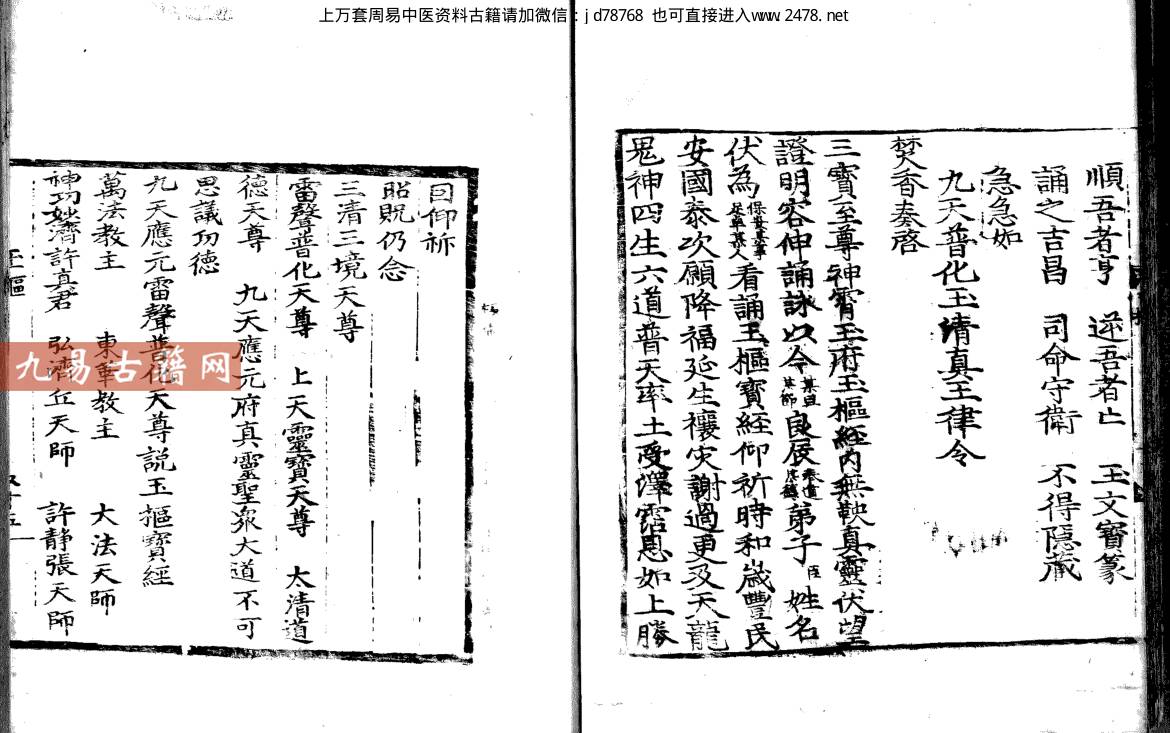 上万套周易中医资料古籍请加微信：jd78768 也可直接进入www.2478.net
順吾者亨 逆吾者亡 玉文寶篆
誦之吉昌 司命守衛 不得隱藏
急急如
九天普化玉清真王律令
焚香奏啓
三寶至尊神霄玉府玉樞經內無鞅真靈伏望
證明容伸誦詠以今某日某節良辰奉道弟子臣姓名
伏為看誦玉樞寶經仰祈時和歲豐民
安國泰次願降福延生禳灾謝過更及天龍
鬼神四生六道普天率土受澤霑恩如上勝
因仰祈
昭貺仍念
三清三境天尊
雷聲普化天尊 上天靈寶天尊 太清道
德天尊 九天應元府真靈聖衆大道不可
思議功德
九天應元雷聲普化天尊説玉樞寶經
萬法教主 東華教主 大法天師
神功妙濟許真君 弘濟丘天師 許静張天師
玉樞
九易古籍网